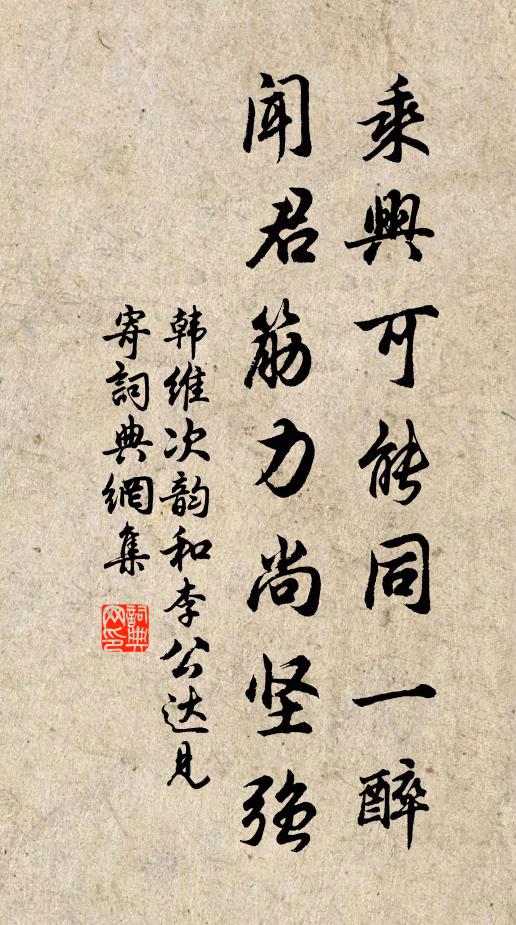 乘興可能同一醉
闻君筋力尚坚強
韩维次韵和李公达見
寄詞典網集
詞典网印